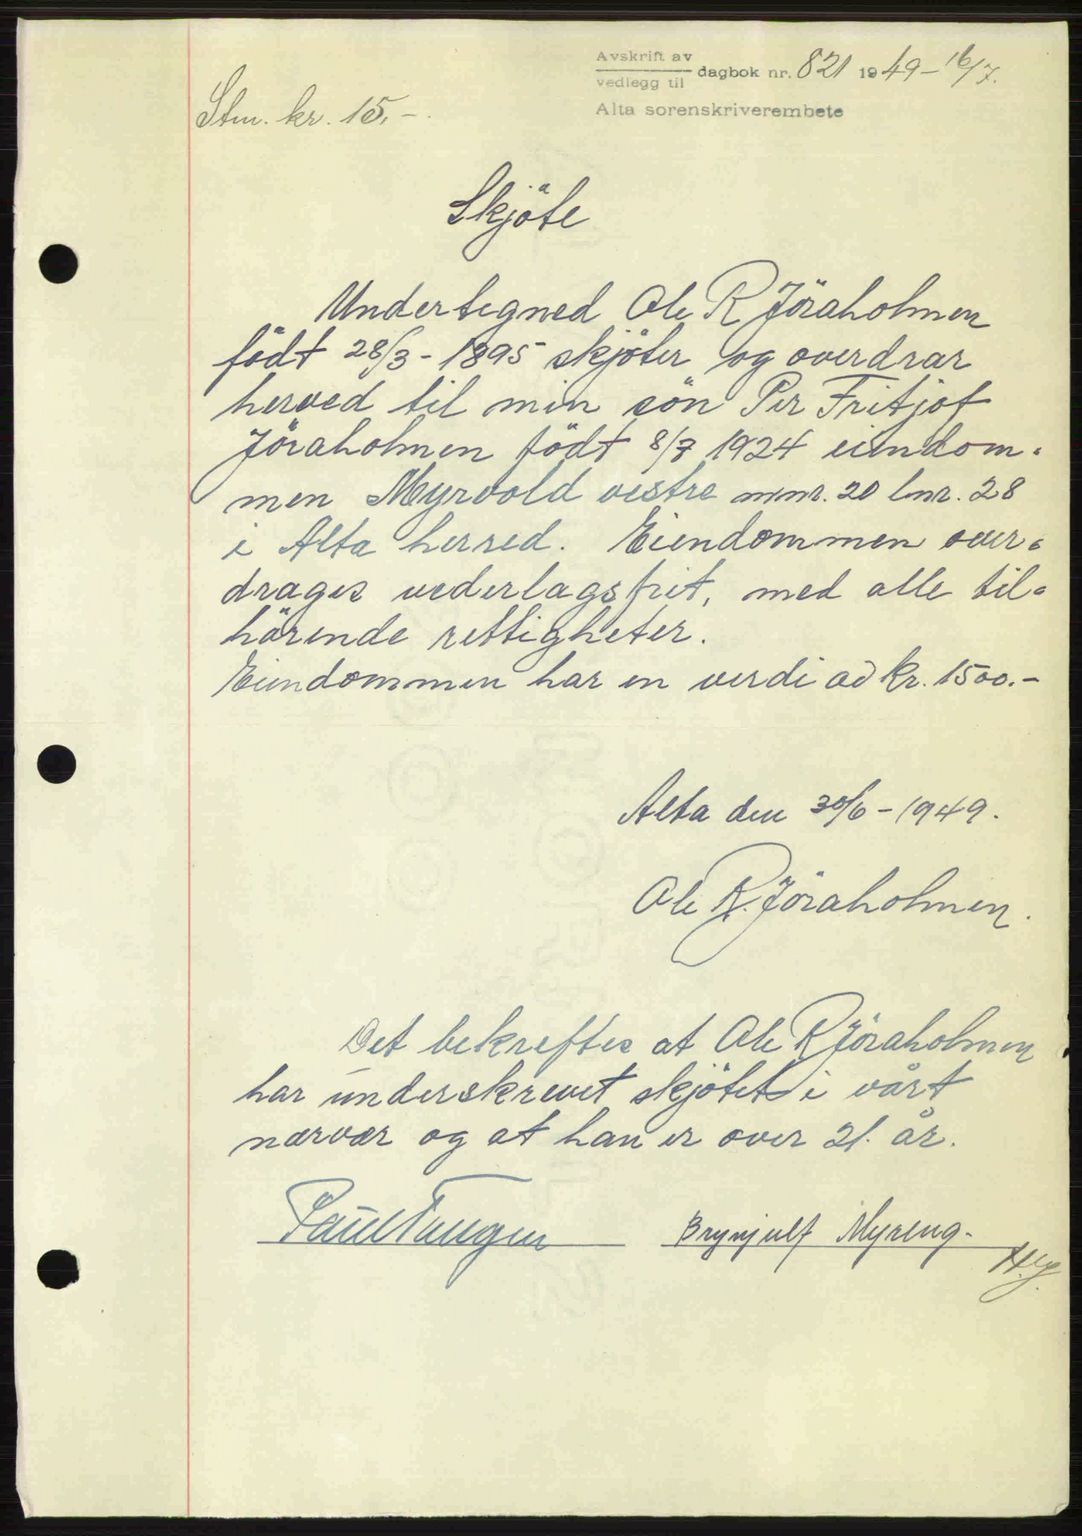 Avskrift av
vedlegg til dagbok nr. 821 1949 - 16/7.
Alta sorenskriverembete
Stm. kr. 15.-
Skjöte
Undertegned Ole R Jöraholmen
född 28/3 - 1895 skjöter og overdrar
herved til min sön Per Fritjof
Jöraholmen född 8/7 1924 eiendom-
men Myrvold vestre mnr. 20 lnr. 28
i Alta herred. Eiendommen over-
drages vederlagsfrit, med alle til-
hörende rettigheter.
Eiendommen har en verdi av kr. 1500.-
Alta den 30/6 - 1949.
Ole R. Jöraholmen.
Det bekreftes at Ole R Jöraholmen
har underskrevet skjötet i vårt
nærvær og at han er over 21. år.
Brynjulf Myreng.